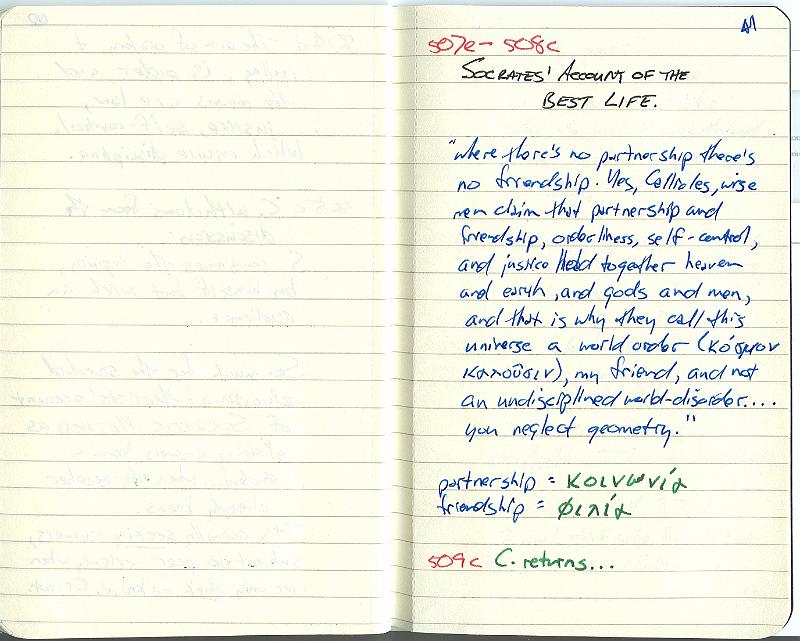 41
507e - 508c
SOCRATES' ACCOUNT OF THE
BEST LIFE.
"where there's no partnership there's
no friendship. Yes, Callicles, wise
men claim that partnership and
friendship, orderliness, self-control,
and justice hold together heaven
and earth, and gods and men,
and that is why they call this
universe a world order (κόσμον
καλοῦσιν), my friend, and not
an undisciplined world-disorder....
you neglect geometry."
partnership = κοινωνία
friendship = φιλία
509c C. returns...